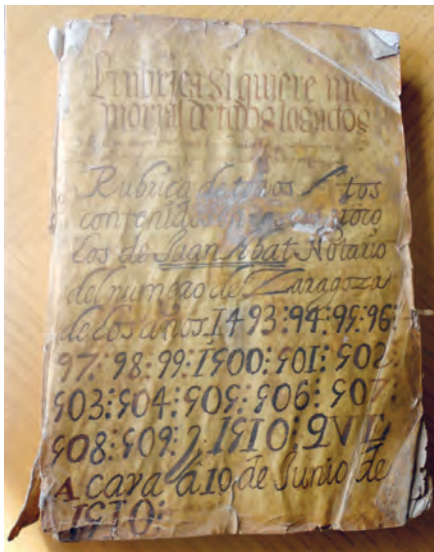 Rubrica siquiere me
morial de todos los actos
Rubrica de todos
contenidos
los de Juan Abat Notario
del numero de Zaragoza
de los años 1493:94:95:96:
97:98:99:1500:501:502
503:504:505:506:507:
508:509:1510:QVE
Acava â 10 de Junio de
1510: